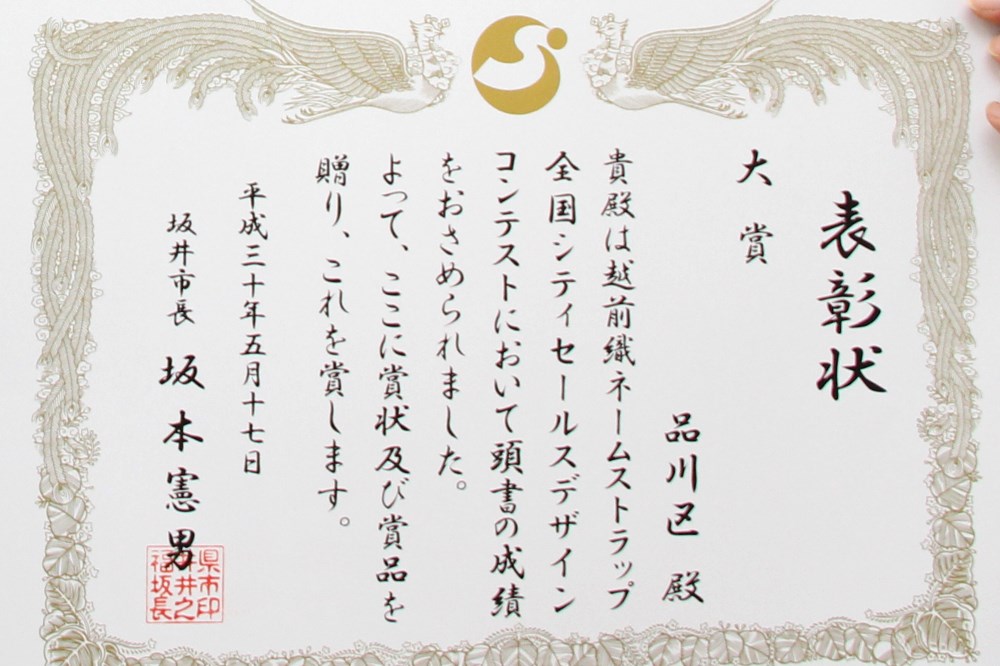 表彰状
大賞
品川区 殿
貴殿は越前織ネームストラップ
全国シティセールスデザイン
コンテストにおいて頭書の成績
をおさめられました。
よって、ここに賞状及び賞品を
贈り、これを賞します。
平成三十年五月十七日
坂井市長 坂本憲男
県市印
井井之
福坂長